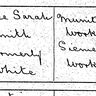 e Sarah
mith
ormerly
White
Munit
Work
Sieme
Work